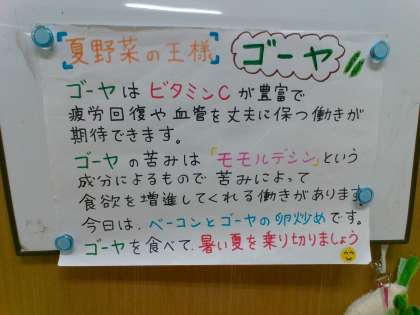 夏野菜の王様 ゴーヤ
ゴーヤはビタミンCが豊富で
疲労回復や血管を丈夫に保つ働きが
期待できます。
ゴーヤの苦みは「モモルデシン」という
成分によるもので苦みによって
食欲を増進してくれる働きがあります
今日は、ベーコンとゴーヤの卵炒めです。
ゴーヤを食べて、暑い夏を乗り切りましょう